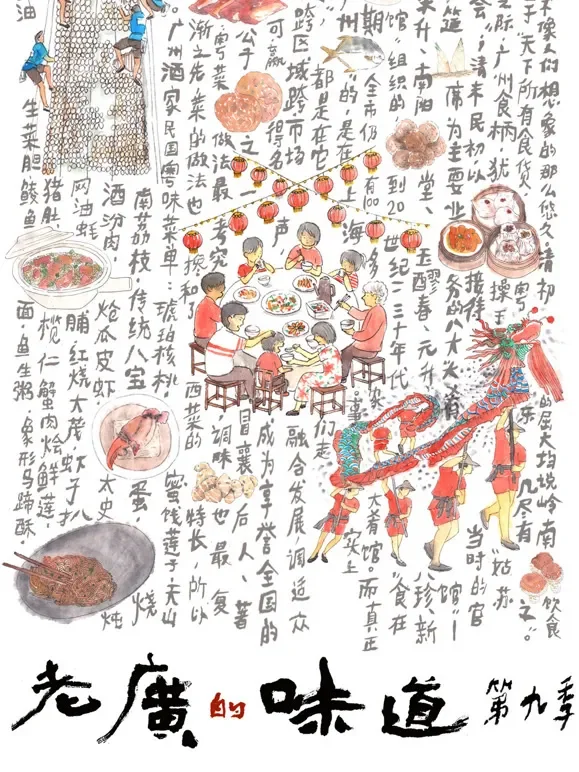 不像人们想象的那么悠久。清初
的屈大均说岭南
饮食
于“天下所有食货，粤
东几尽有
之”。
之际，广州食柄，犹操于
“姑苏
会”；清末民初以接待
当时的官
筵席为主要业务的八大肴
馆”——
来升、南阳堂、玉醪春、元升
八珍新
馆”组织的，到20世纪二三十年代
“食在
期，全市仍有100多家
大肴馆。而真正
州”的，是在上海
事实上
都是在它们
融合发展，调适众
跨区域跨市场
可赢得名声
成为享誉全国的
公子
之一
冒襄后人、著
粤菜做法最考究
调味也最复
渐之先，菜的做法也掺和了
西菜的特长，所以
广州酒家民国粤味菜单：琥珀核桃
蜜饯莲子、夫山
南荔枝
传统八宝蛋
烧
酒汾肉，
炝瓜皮虾
太史
炖
猪肚
网油蚝
脯，红烧大茂虾子扒
榄仁蟹肉烩鲜莲，
油
生菜胆，鲮鱼
面，鱼生粥，象形马蹄酥。
老廣的味道 第九季